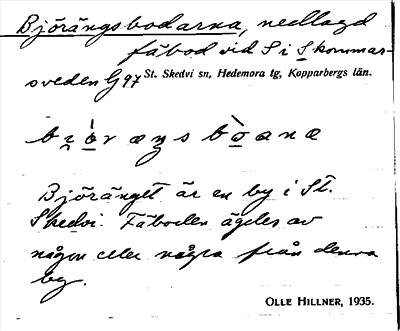 Björängsbodarna, nedlagd
fäbod vid S i Skommar-
sveden G97 St. Skedvi sn, Hedemora tg, Kopparbergs län.
Björänget är en by i St.
Skedvi. Fäboden ägdes av
någon eller några från denna
by.
OLLE HILLNER, 1935.